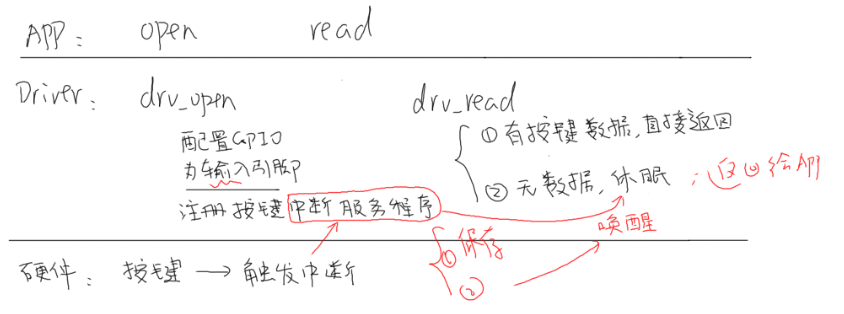 APP: open read
Driver: drv_open drv_read
配置GPIO
为输入引脚
注册按键中断服务程序
① 有按键数据,直接返回
② 无数据,休眠 ; 返回给APP
唤醒
① 保存
②
硬件: 按键 → 触发中断